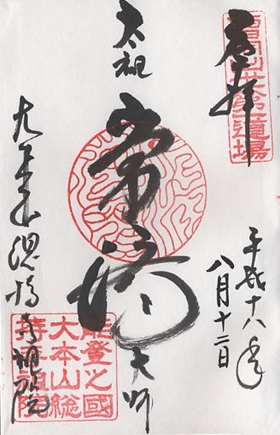 奉拝
平成十八年
八月十二日
太祖
常済大師
大本山總持寺祖院
能登之國
大本山總
持寺祖院